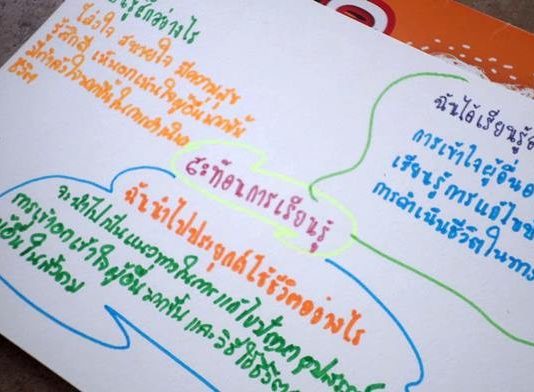 รู้สึกอย่างไร
โล่งใจ สบายใจ มีความสุข
รู้สึกดี เห็นอกเห็นใจผู้อื่นมากขึ้น
มีกำลังใจมากขึ้นในการดำเนิน
ชีวิต
สะท้อนการเรียนรู้
ฉันได้เรียนรู้
การเข้าใจผู้อื่น
เรียนรู้การแก้ไข
การดำเนินชีวิตในทาง
ฉันนำไปประยุกต์ใช้ชีวิตอย่างไร
จะนำไปเป็นแนวทางในการแก้ไขปัญหา อุปสรรค
การเข้าอกเข้าใจผู้อื่นมากขึ้น และวิธีใช้ชีวิต
ผู้อื่นในสังคม